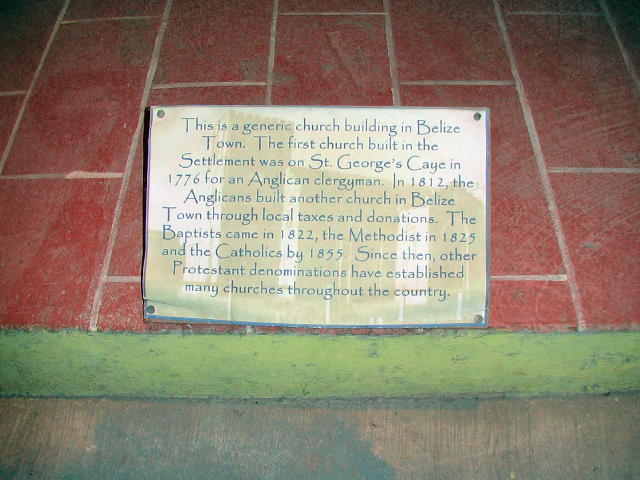 This is a generic church building in Belize
Town. The first church built in the
Settlement was on St. George's Caye in
1776 for an Anglican clergyman. In 1812, the
Anglicans built another church in Belize
Town through local taxes and donations. The
Baptists came in 1822, the Methodist in 1825
and the Catholics by 1855. Since then, other
Protestant denominations have established
many churches throughout the country.